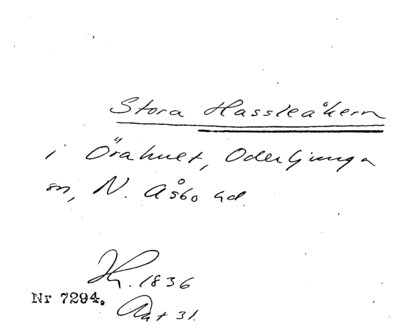 Stora Hassleåkern
i Örahult, Oderljunga
sn, N. Åsbo hd.
H. 1836
Nr 7294.
Akt 31.